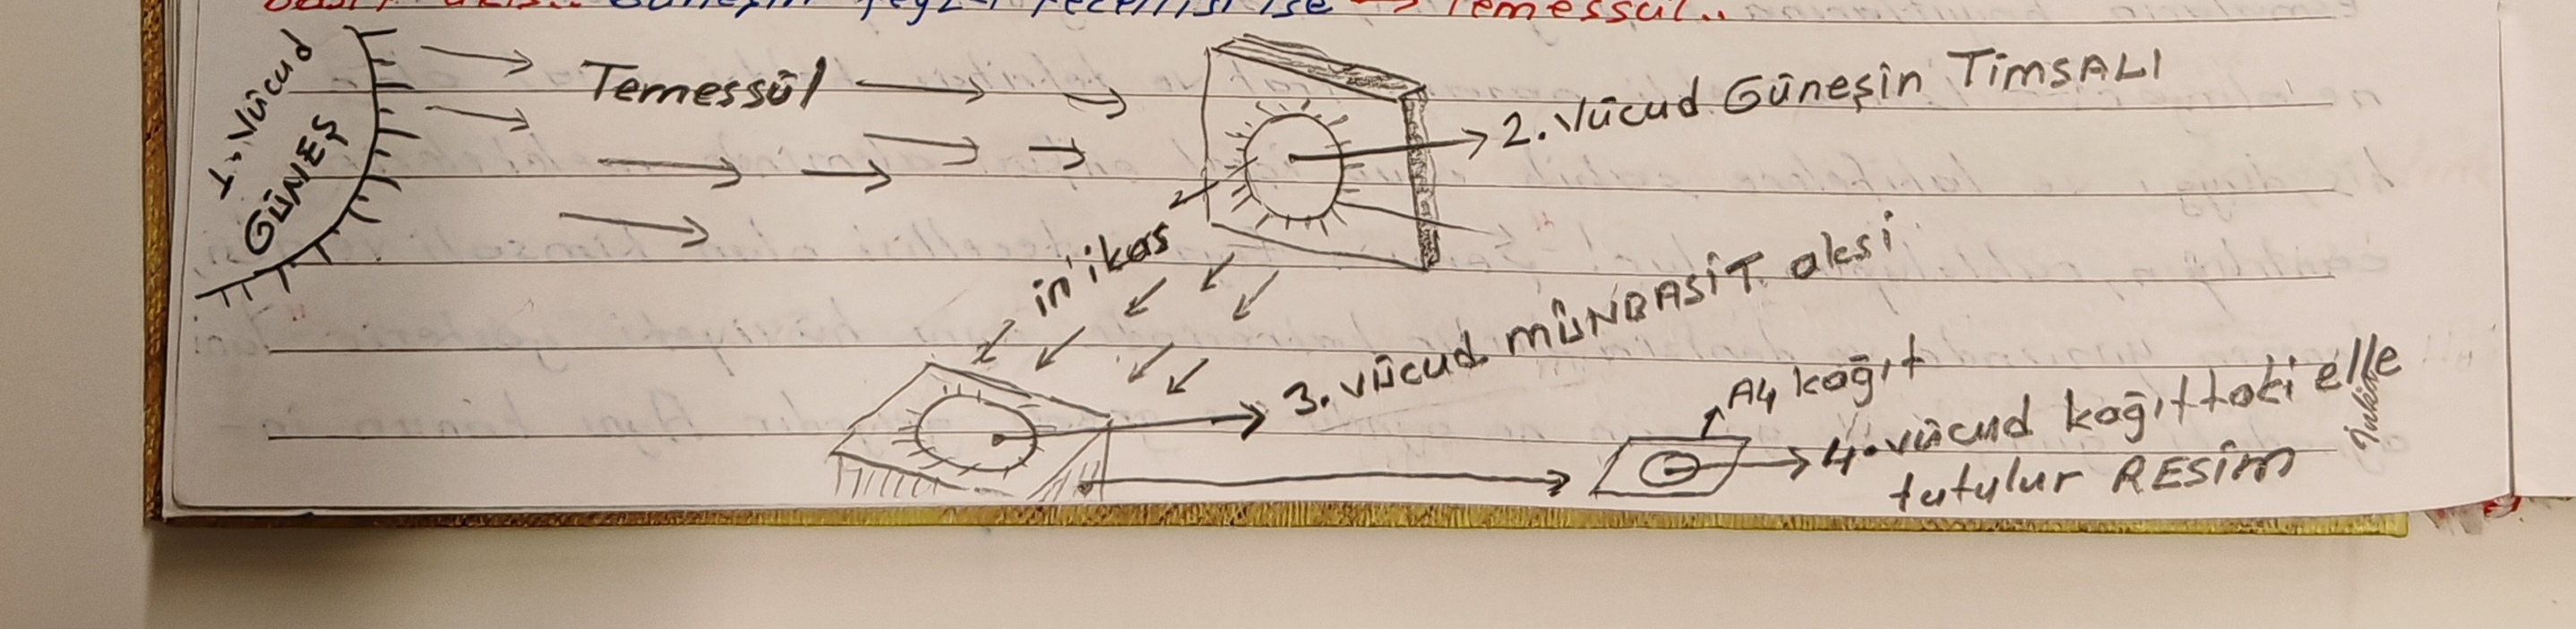 Güneşin feyz-i tecellisi ise → Temessül..
1. Vücud
GÜNEŞ
Temessül
2. Vücud Güneşin TimSALI
in'ikas
3. vücud MÜNBASİT aksi
A4 kağıt
4. vücud kağıttaki elle
tutulur RESİM